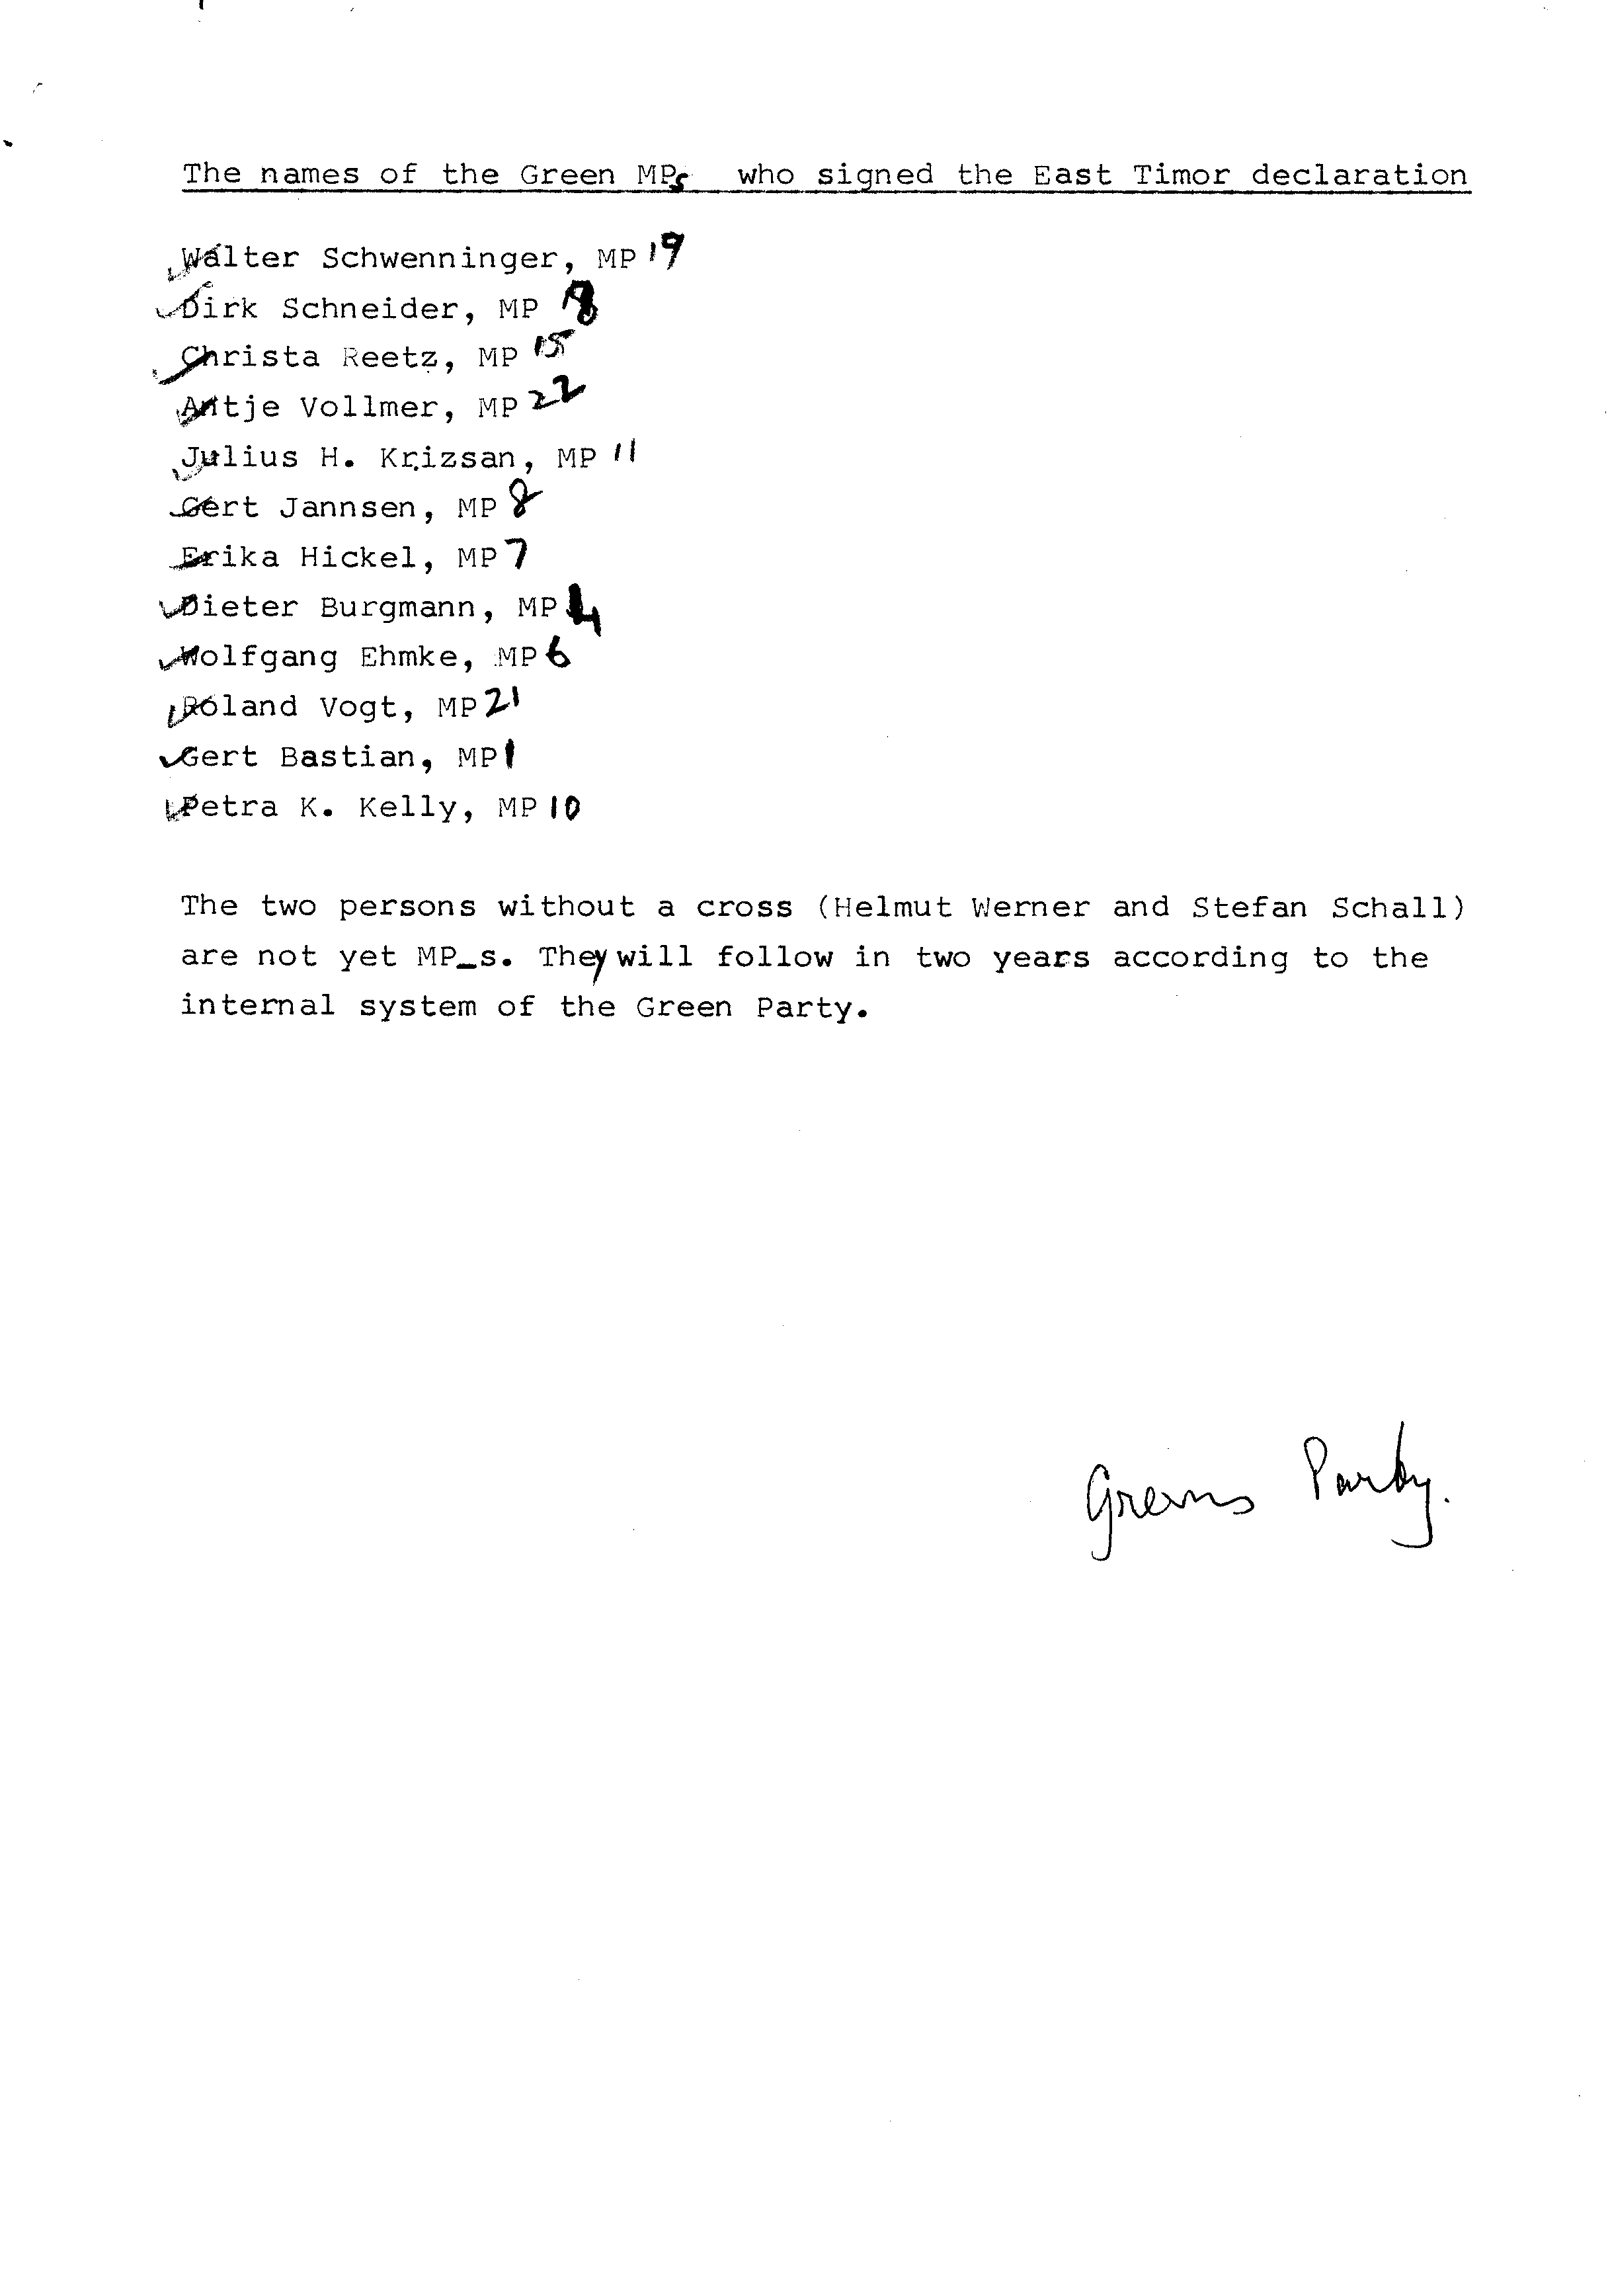 The names of the Green MPs who signed the East Timor declaration
Walter Schwenninger, MP 19
Dirk Schneider, MP 18
Christa Reetz, MP 15
Antje Vollmer, MP 22
Julius H. Krizsan, MP 11
Gert Jannsen, MP 8
Erika Hickel, MP 7
Dieter Burgmann, MP 4
Wolfgang Ehmke, MP 6
Roland Vogt, MP 21
Gert Bastian, MP 1
Petra K. Kelly, MP 10
The two persons without a cross (Helmut Werner and Stefan Schall)
are not yet MP_s. They will follow in two years according to the
internal system of the Green Party.
Greens Party.